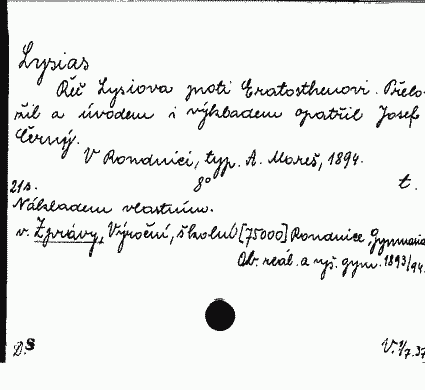 Lysias
Řeč Lysiova proti Eratosthenovi. Přelo-
žil a úvodem i výkladem opatřil Josef
Černý.
V Roudnici, typ. A. Mareš, 1894.
21 s. 8° t.
Nákladem vlastním.
v. Zprávy, Výroční, školní [75000] Roudnice, Gymnasia
Ob. reál. a vyš. gymn. 1893/94.
D.S V. 1/7.37